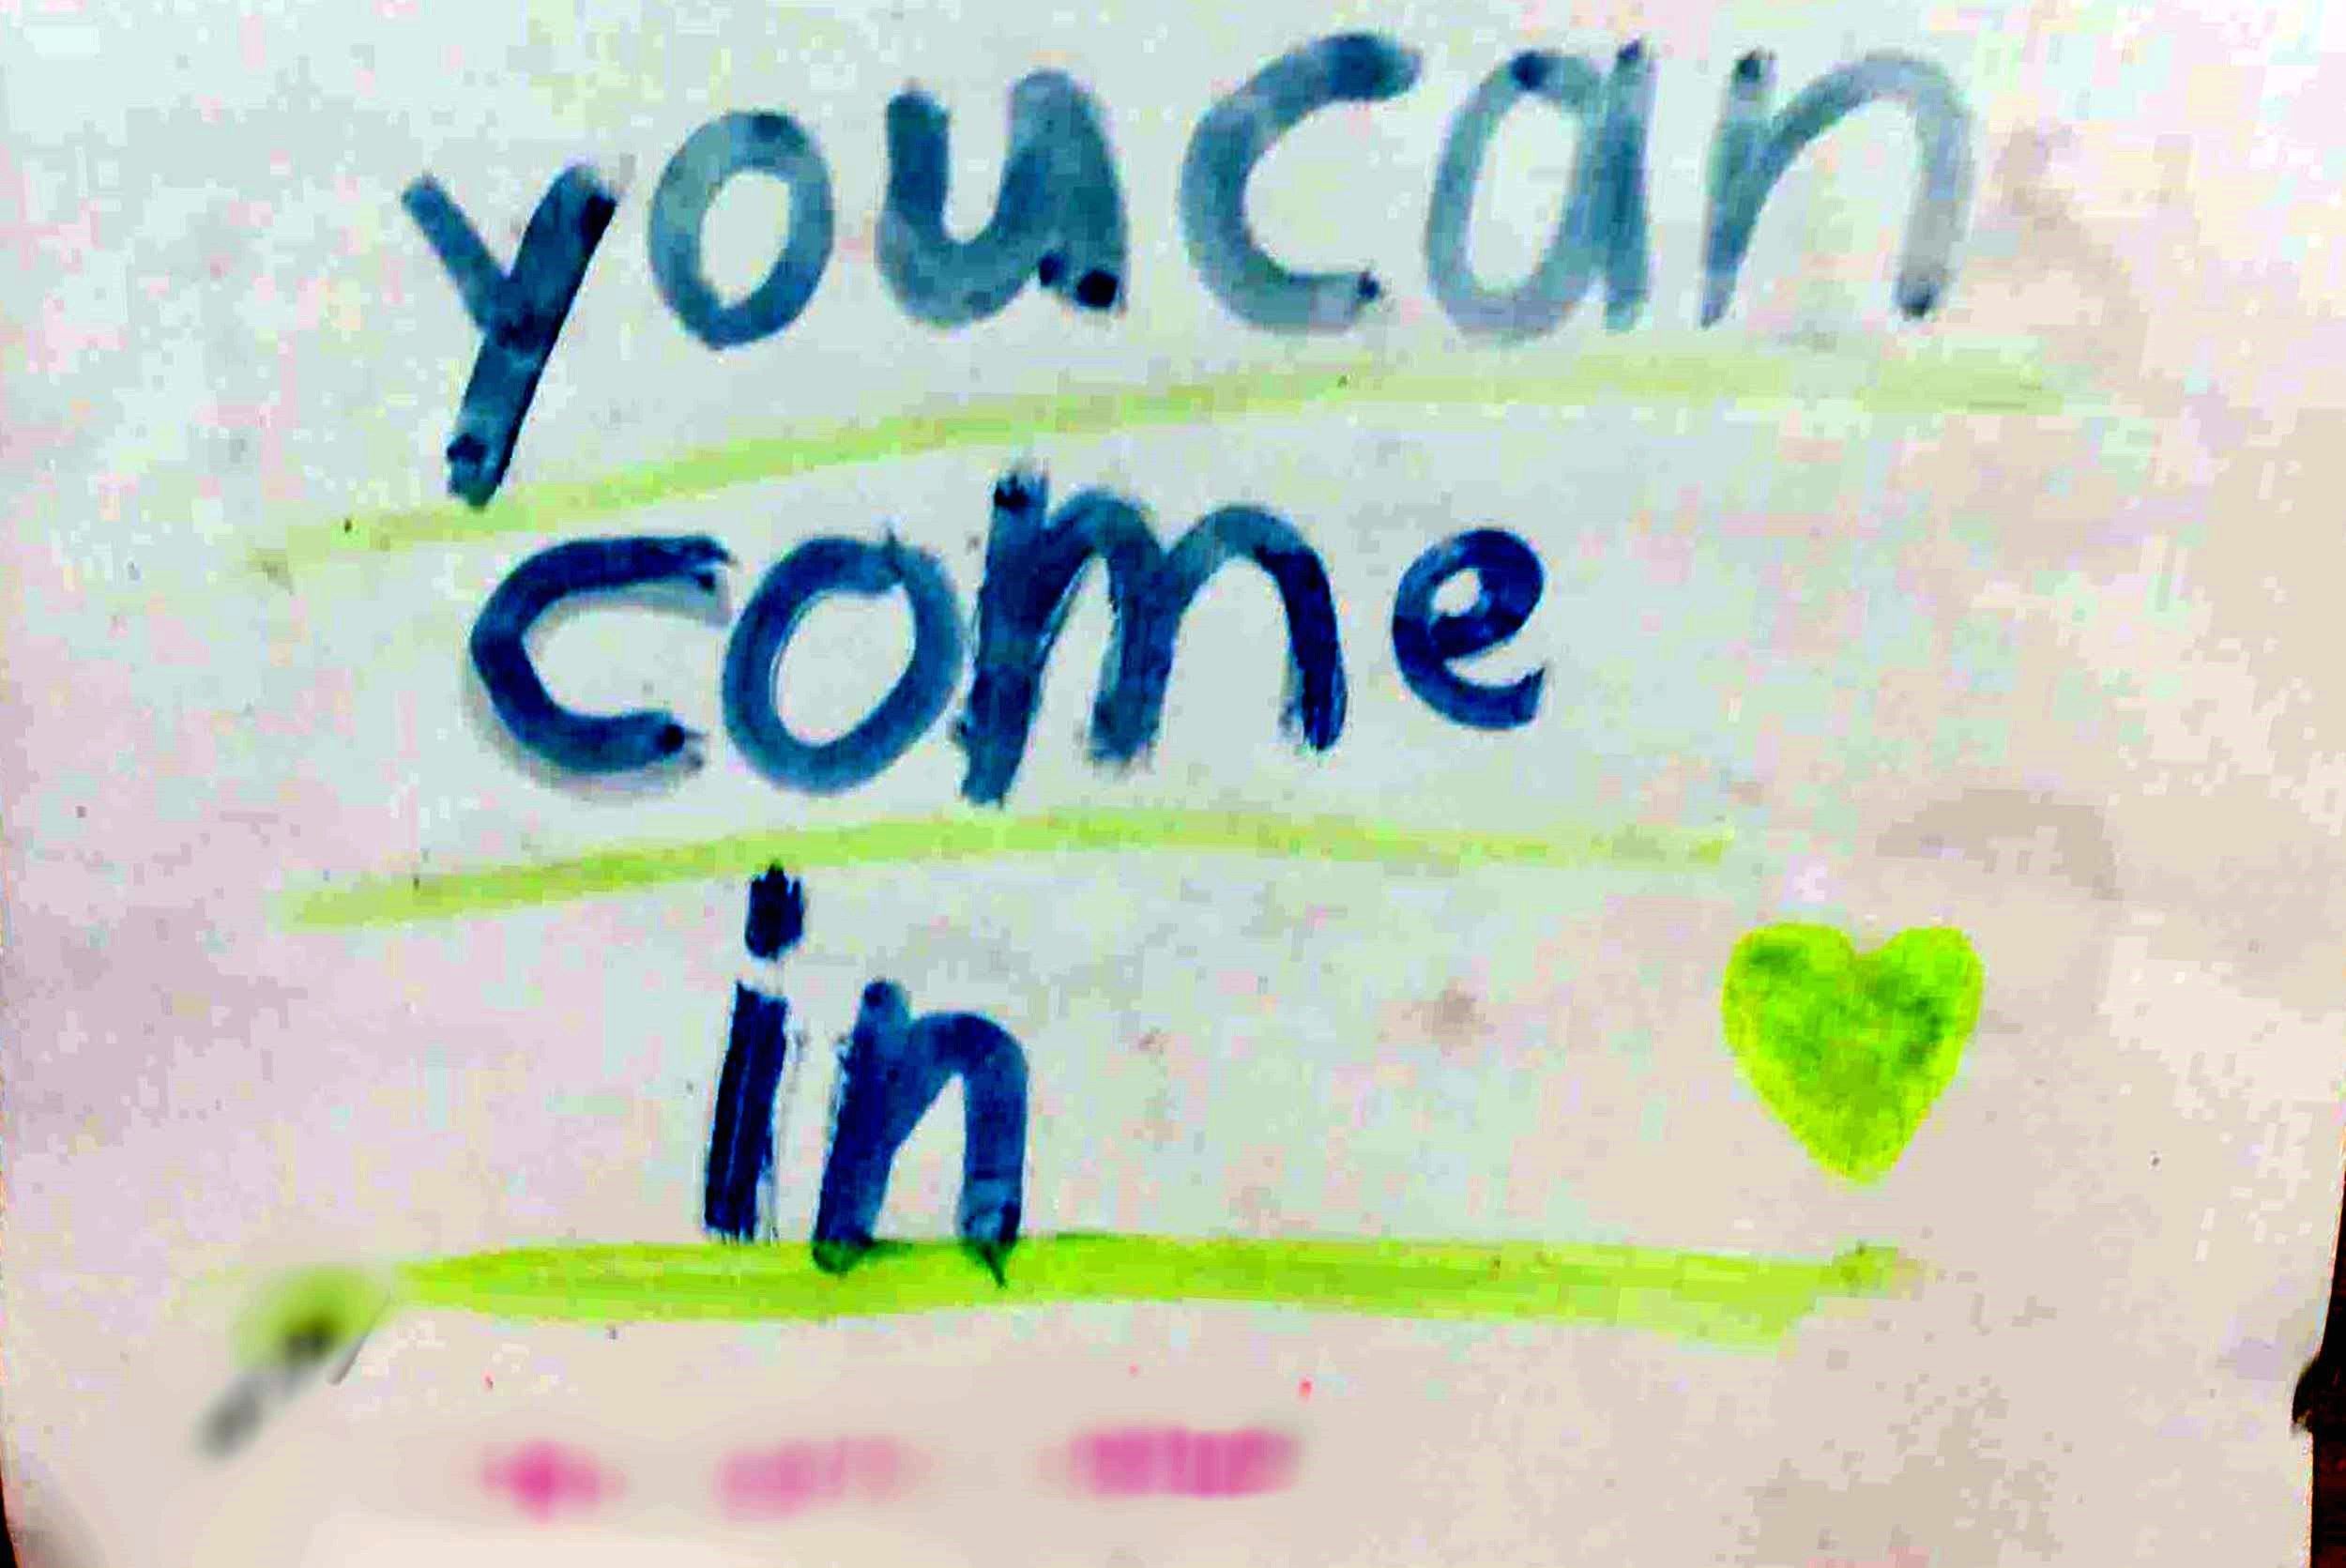 you can
come
in